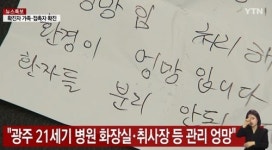 뉴스특보
확진자 가족·접촉자 확진
YTN
엉망 입
처리 해
환경이
엉망 입니다
환자들
분리 안되
"광주 21세기 병원 화장실·취사장 등 관리 엉망"